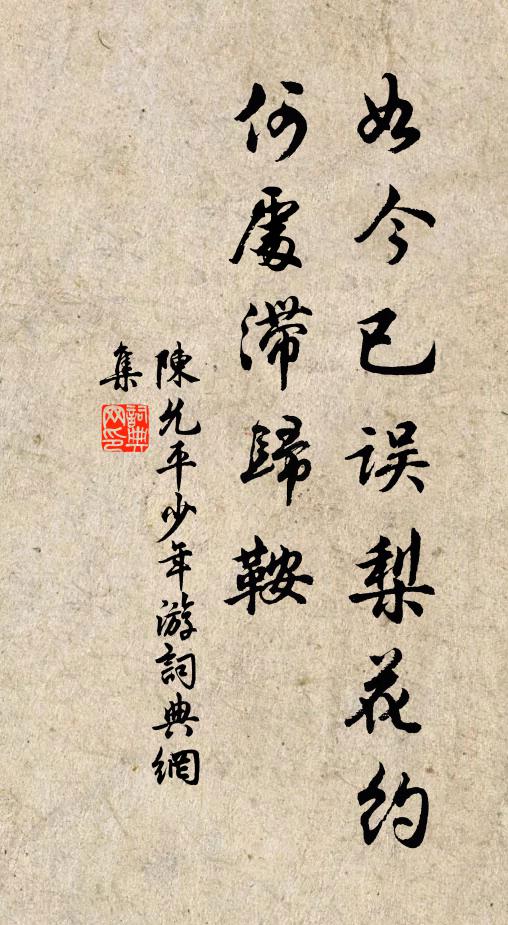 如今已误梨花约
何處滯歸鞍
陳允平少年游詞典網
集
詞典
网印